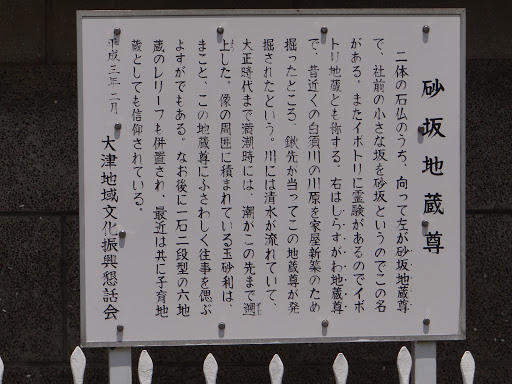 砂坂地蔵尊
二体の石仏のうち、向って左が砂坂地蔵尊
で、社前の小さな坂を砂坂というのでこの名
がある。またイボトリに霊験があるのでイボ
トリ地蔵とも称する。右はしらすがわ地蔵尊
で、昔近くの白須川の川原を家屋新築のため
掘ったところ、鍬先か当ってこの地蔵尊が発
掘されたという。川には清水が流れていて、
大正時代まで満潮時には、潮がこの先まで遡
上した。像の周囲に積まれている玉砂利は、
まこと、この地蔵尊にふさわしく往事を偲ぶ
よすがでもある。なお後に一石二段型の六地
蔵のレリーフも併置され、最近は共に子育地
蔵としても信仰されている。
平成三年二月
大津地域文化振興懇話会